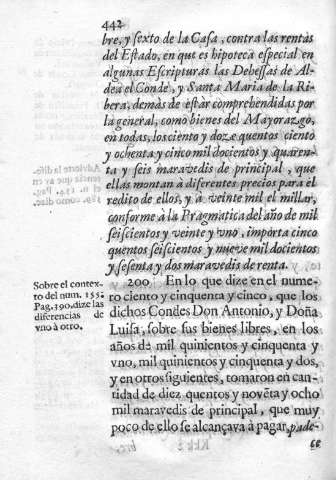 442
bre, y sexto de la Casa, contra las rentas
del Estado, en que es hipoteca especial en
algunas Escripturas las Debessas de Al-
dea el Conde, y Santa Maria de la Ri-
bera, demàs de estàr comprehendidas por
la general, como bienes del Mayorazgo,
en todas, los ciento y doze quentos ciento
y ochenta y cinco mil docientos y quaren-
ta y seis maravedis de principal, que
ellas montan à diferentes precios para el
redito de ellos, y à veinte mil el millar,
conforme à la Pragmatica del año de mil
seiscientos y veinte y vno, importa cinco
quentos seiscientos y nueve mil docientos
y sesenta y dos maravedis de renta.
Sobre el contex-
to del num. 155.
Pag. 390. dize las
diferencias de
vno à otro.
200 En lo que dize en el nume-
ro ciento y cinquenta y cinco, que los
dichos Condes Don Antonio, y Doña
Luisa, sobre sus bienes libres, en los
años de mil quinientos y cinquenta y
vno, mil quinientos y cinquenta y dos,
y en otros siguientes, tomaron en can-
tidad de diez quentos y novẽta y ocho
mil maravedis de principal, que muy
poco de ello se alcançava à pagar, pade-